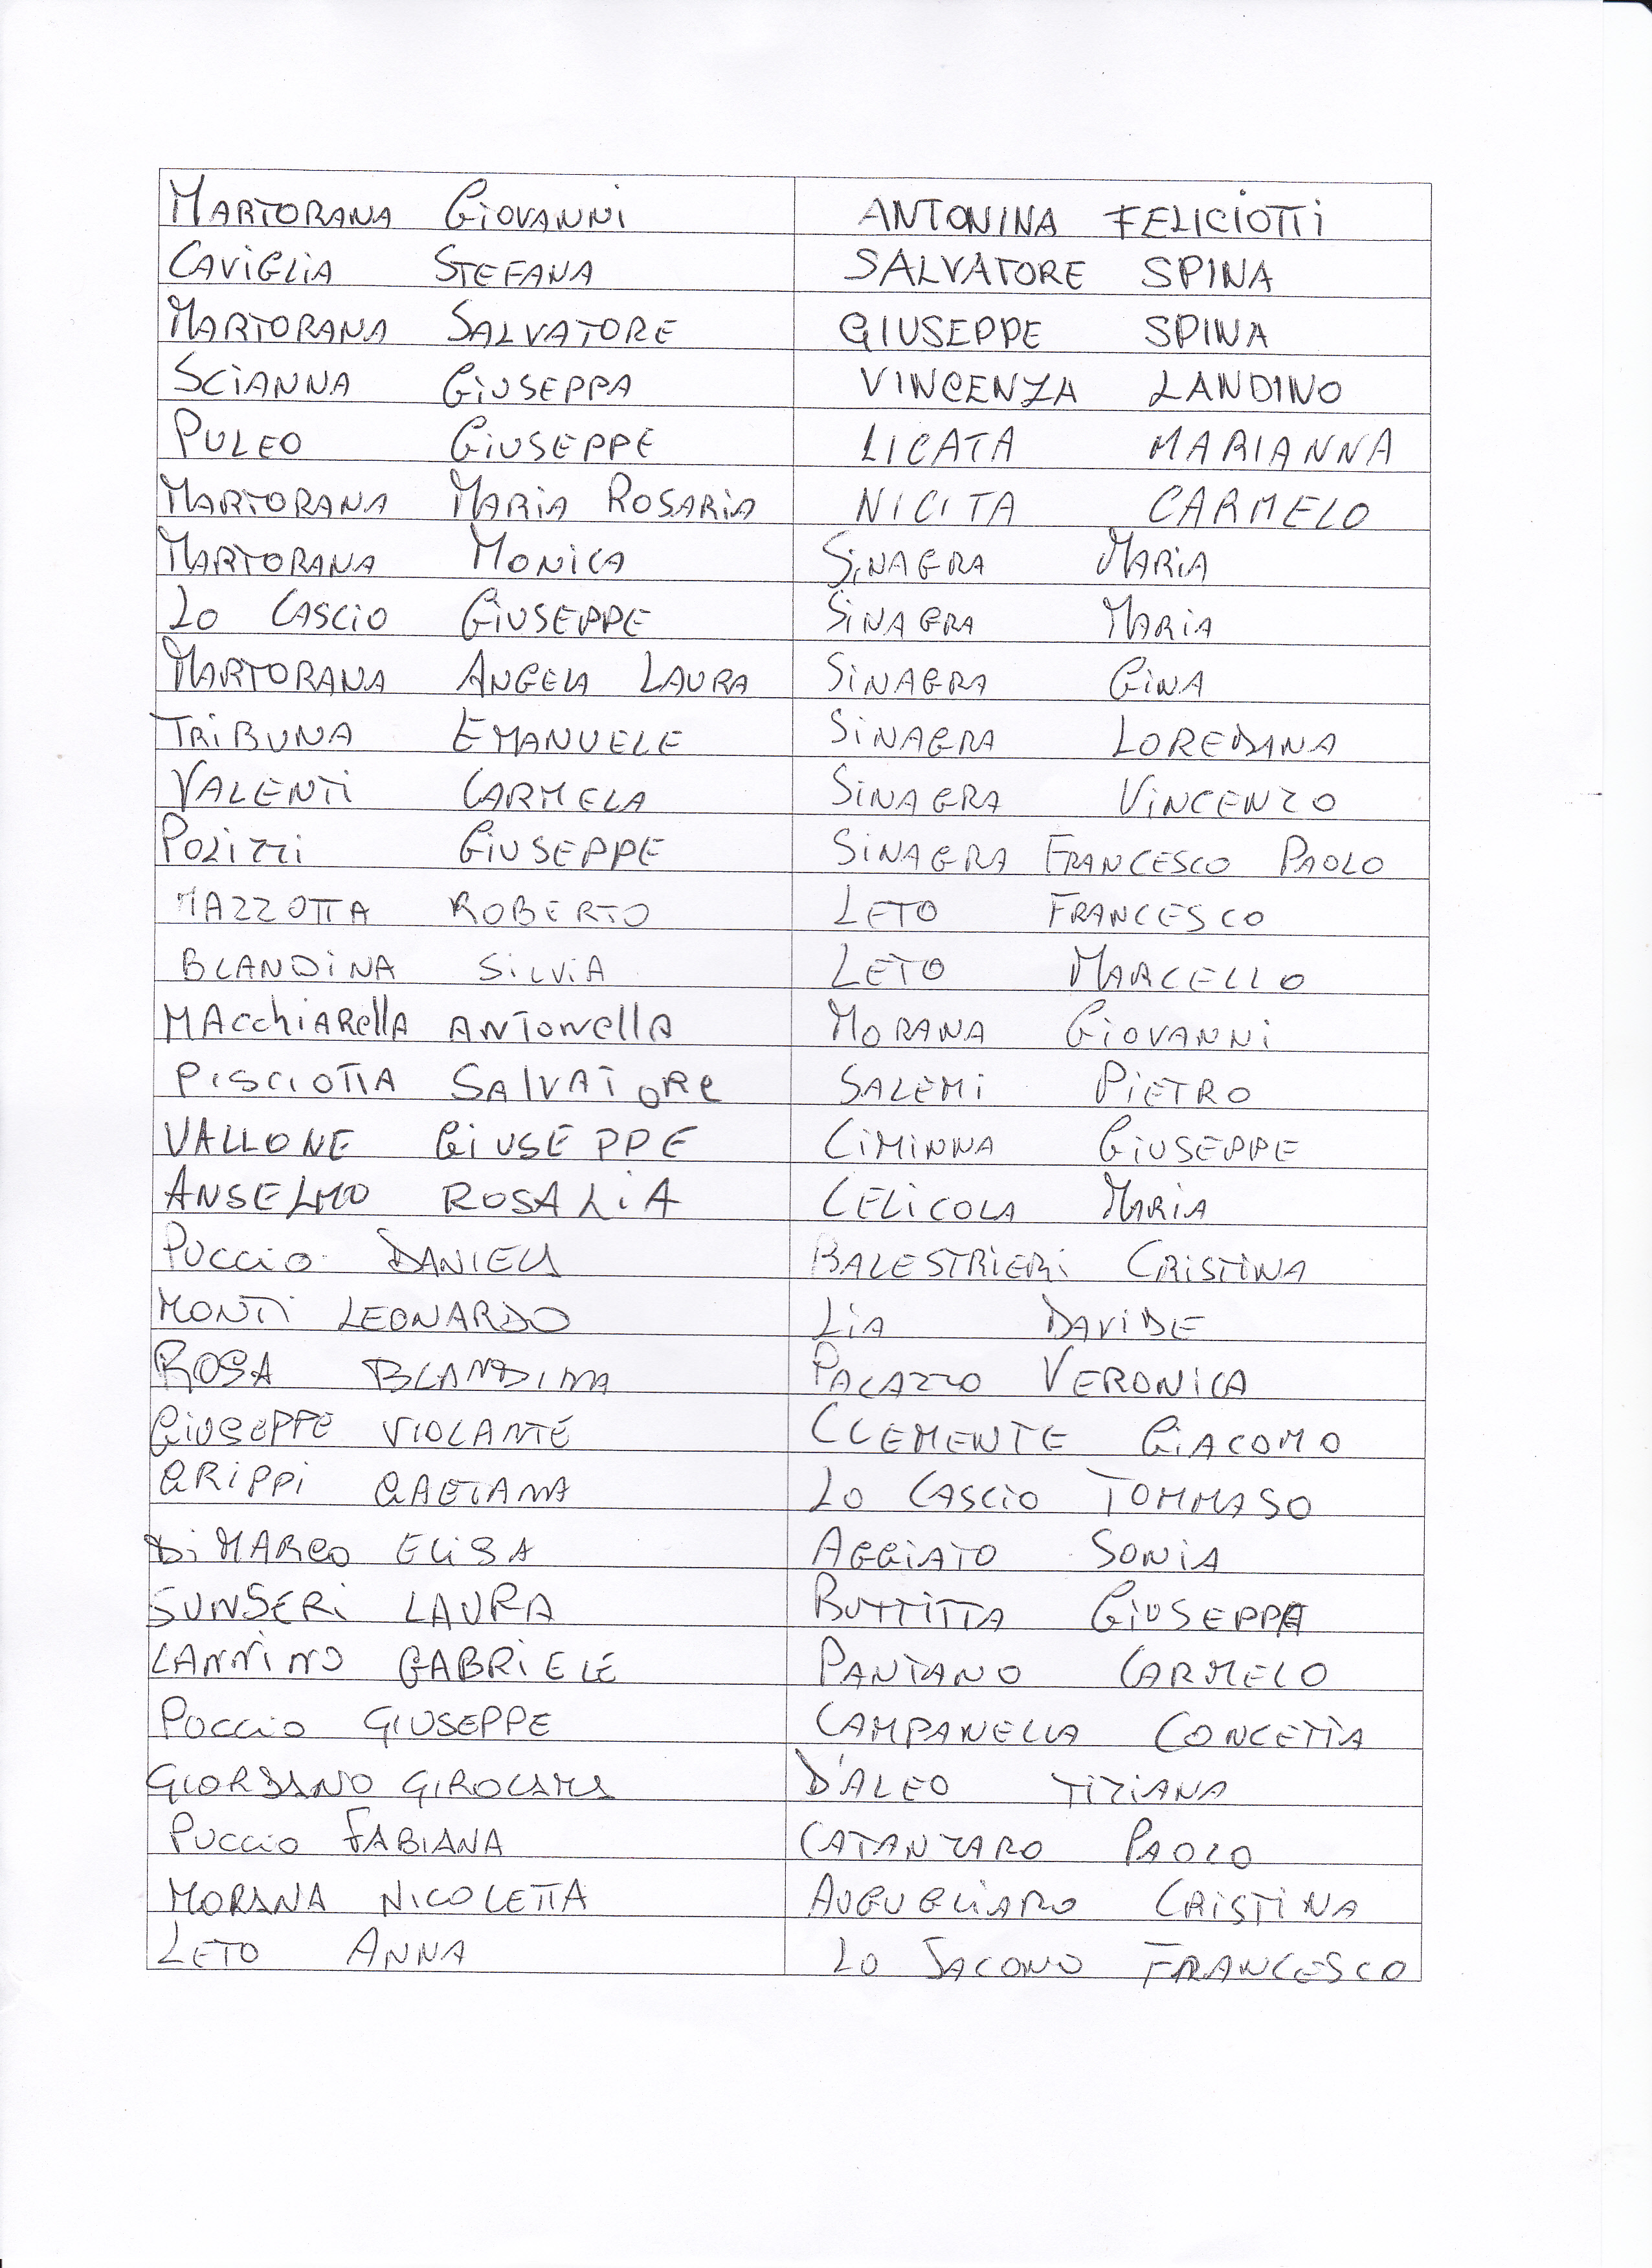 MARTORANA GiOVANNi
ANTONINA FELICIOTTi
CAViGLiA STEFANA
SALVATORE SPINA
MARTORANA SALVATORE
GIUSEPPE SPINA
SCiANNA GiUSEPPA
VINCENZA LANDINO
PULEO GiUSEPPE
LICATA MARIANNA
MARTORANA MARiA ROSARiA
NICITA CARMELO
MARTORANA MONiCA
SiNAGRA MARiA
LO CASCiO GiUSEPPE
SiNAGRA MARiA
MARTORANA ANGELA LAURA
SiNAGRA GiNA
TRiBUNA EMANUELE
SiNAGRA LOREDANA
VALENTi CARMELA
SiNAGRA ViNCENZO
POLiZZi GiUSEPPE
SiNAGRA FRANCESCO PAOLO
MAZZOTTA ROBERTO
LETO FRANCESCO
BLANDiNA SiLViA
LETO MARCELLO
MAcchiARellA ANTONellA
MORANA GiOVANNi
PISCIOTTA SAlVATORe
SALEMi PiETRO
VALLONE GiUSEPPE
CiMiNNA GiUSEPPE
ANSELMO ROSALiA
CELiCOLA MARiA
PUCCiO DANIELA
BALESTRiERi CRiSTiNA
MONTi LEONARDO
LiA DAViDE
ROSA BLANDINA
PALAZZO VERONiCA
GiUSEPPE VIOLANTE
CLEMENTE GiACOMO
GRiPPi GAETANA
LO CASCiO TOMMASO
Di MARCO ELiSA
AGGiATO SONiA
SUNSERi LAURA
BUTTiTTA GiUSEPPA
LANNiNO GABRiELE
PANTANO CARMELO
PUCCiO GIUSEPPE
CAMPANELLA CONCETTA
GIORDANO GIROLAMA
D'ALEO TiZiANA
PUCCiO FABIANA
CATANZARO PAOLO
MORANA NICOLETTA
AUGUGLiARO CRiSTiNA
LETO ANNA
LO JACONO FRANCESCO